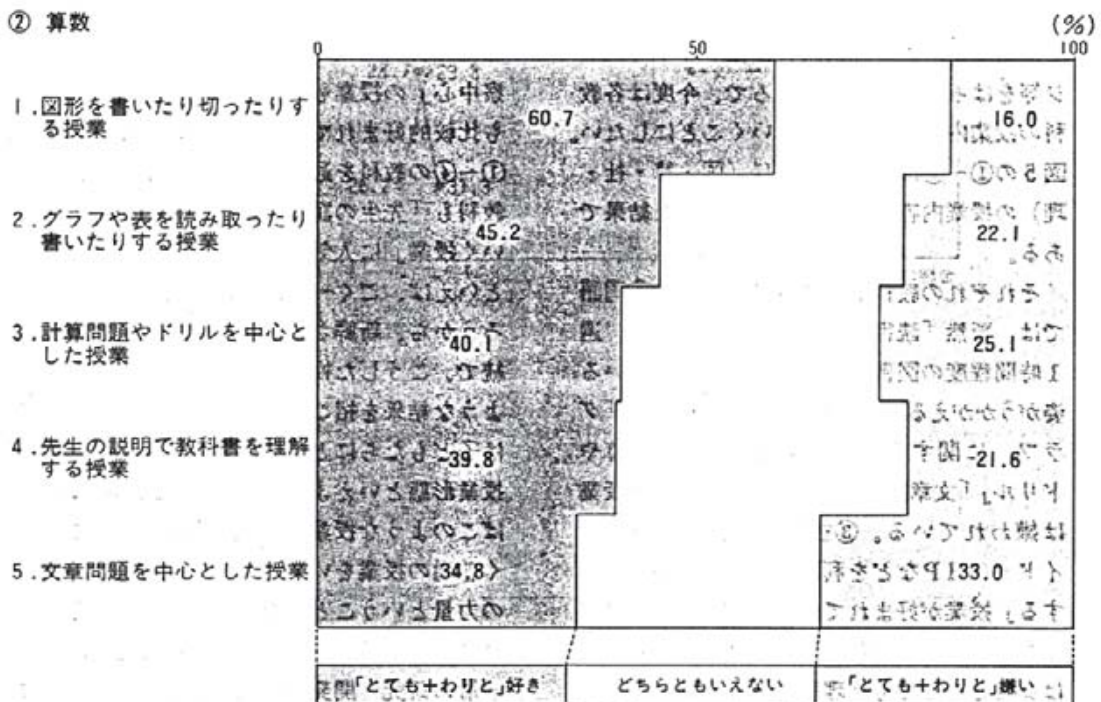 ② 算数
(%)
0 50 100
1.図形を書いたり切ったりす
る授業
60.7 16.0
2.グラフや表を読み取ったり
書いたりする授業
45.2 22.1
3.計算問題やドリルを中心と
した授業
40.1 25.1
4.先生の説明で教科書を理解
する授業
39.8 21.6
5.文章問題を中心とした授業
34.8 33.0
「とても+わりと」好き どちらともいえない 「とても+わりと」嫌い